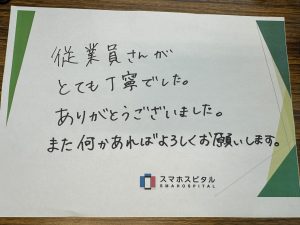 従業員さんが
とても丁寧でした。
ありがとうございました。
また何かあればよろしくお願いします。
スマホスピタル
SMAHOSPITAL